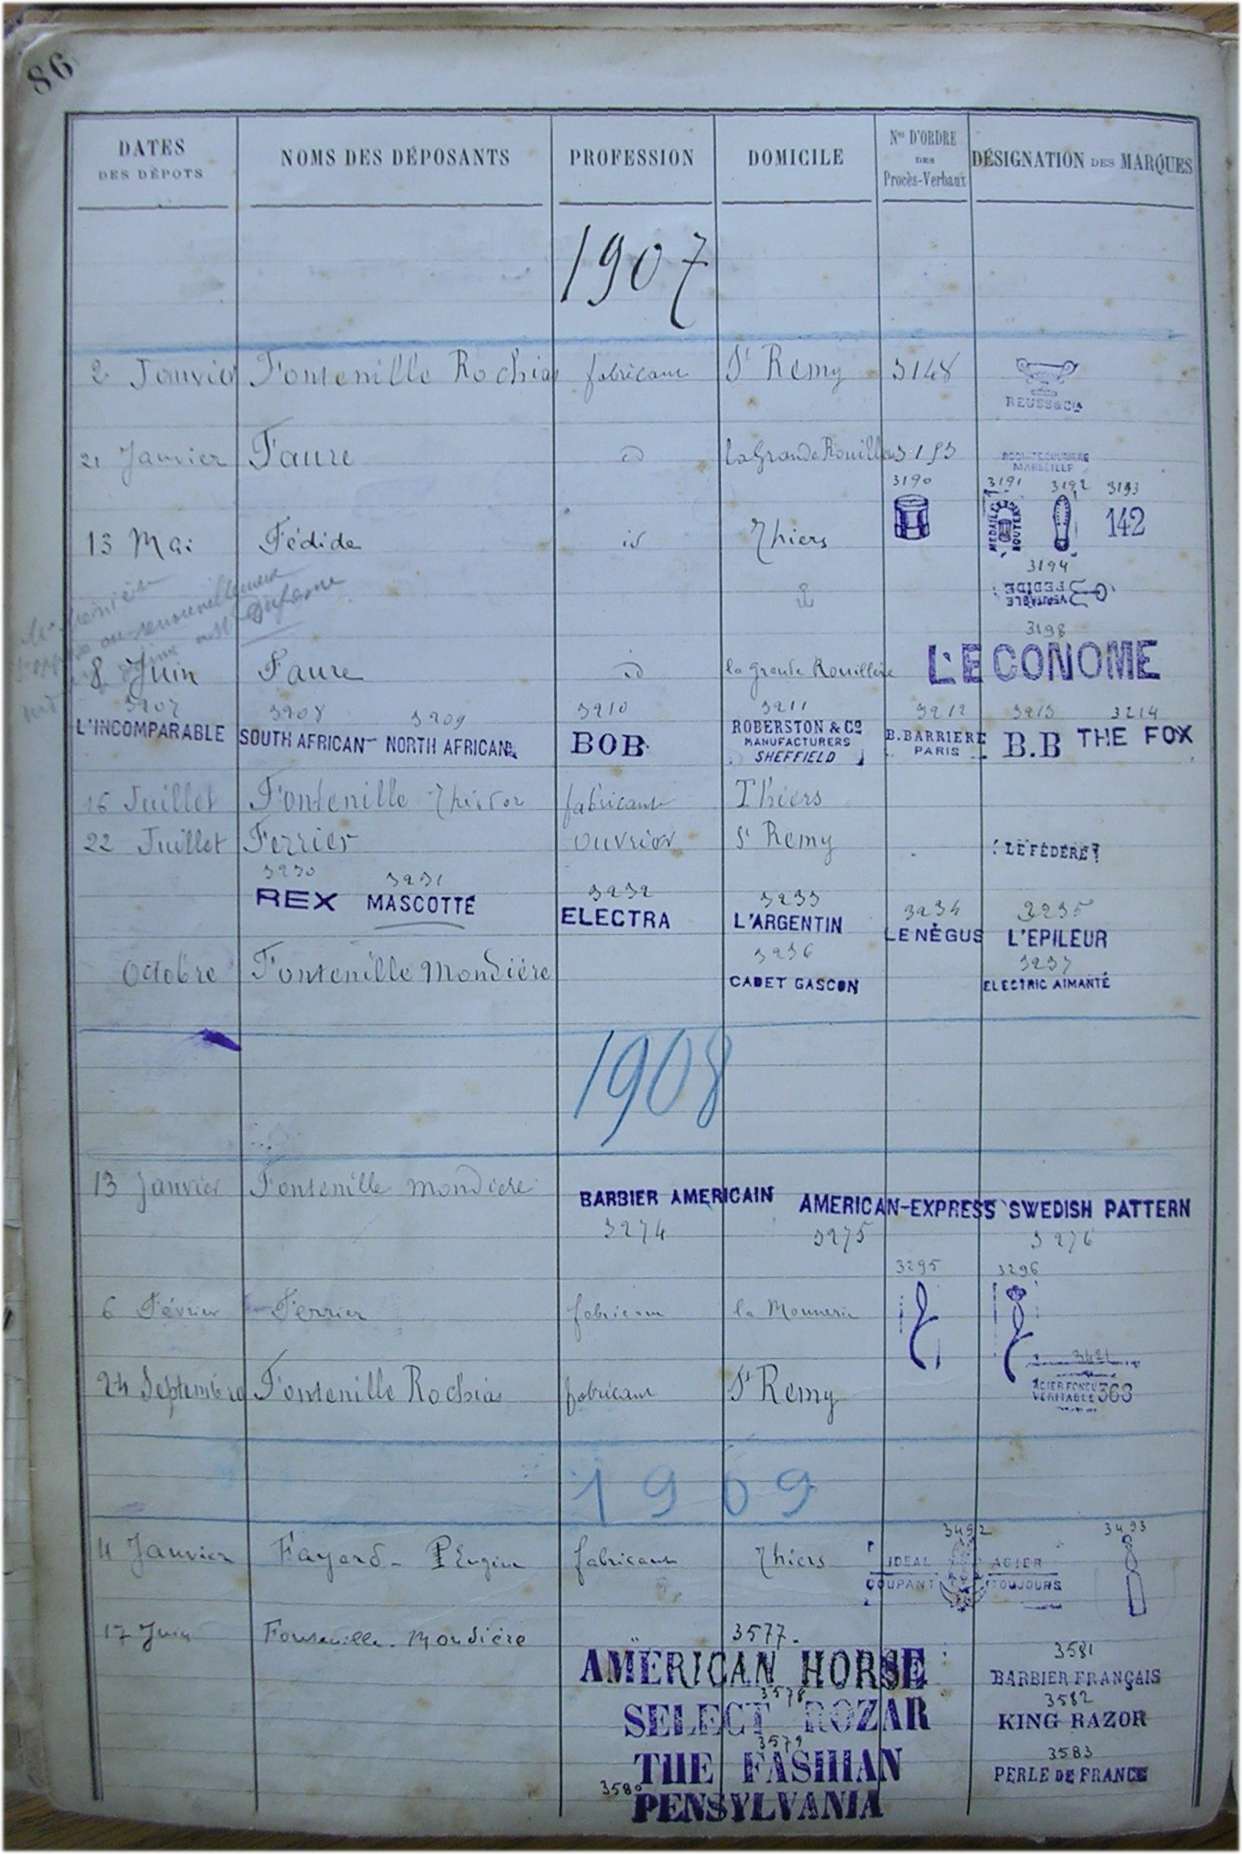 86
DATES DES DÉPOTS NOMS DES DÉPOSANTS PROFESSION DOMICILE Nos D'ORDRE DES Procès-Verbaux DÉSIGNATION DES MARQUES
1907
2 Janvier Fontenille Rochias fabricant St Remy 3148
REUSS & Cie
21 Janvier Faure d la Grande Rouillère
MARSEILLE
3190 3191 3192 3193
13 Mai Fédide id Thiers MEDAILLE 142
3194
VERITABLE FEDIDE
3198
8 Juin Faure d la Grande Rouillère L'ECONOME
3207 3208 3209 3210 3211 3212 3213 3214
L'INCOMPARABLE SOUTH AFRICAN NORTH AFRICAN BOB ROBERSTON & Co MANUFACTURERS SHEFFIELD B. BARRIERE PARIS B.B THE FOX
16 Juillet Fontenille fabricant Thiers
22 Juillet Ferrier ouvrier St Remy LE FÉDÉRÉ
3230 3231 3232 3233 3234 3235
REX MASCOTTE ELECTRA L'ARGENTIN LE NÈGUS L'EPILEUR
3236 3237
Octobre Fontenille Mondière CADET GASCON ELECTRIC AIMANTÉ
1908
13 Janvier Fontenille Mondière BARBIER AMERICAIN AMERICAN-EXPRESS SWEDISH PATTERN
3274 3275 3276
3295 3296
6 Février Ferrier fabricant la Monnerie
3421
24 Septembre Fontenille Rochias fabricant St Remy ACIER FONDU VERITABLE 363
1909
3492 3493
4 Janvier Fayard fabricant Thiers IDEAL ACIER
COUPANT TOUJOURS
17 Juin Fontenille Mondière 3577.
AMERICAN HORSE
3578
SELECT ROZAR
3579
THE FASHIAN
3580
PENSYLVANIA
3581
BARBIER FRANÇAIS
3582
KING RAZOR
3583
PERLE DE FRANCE